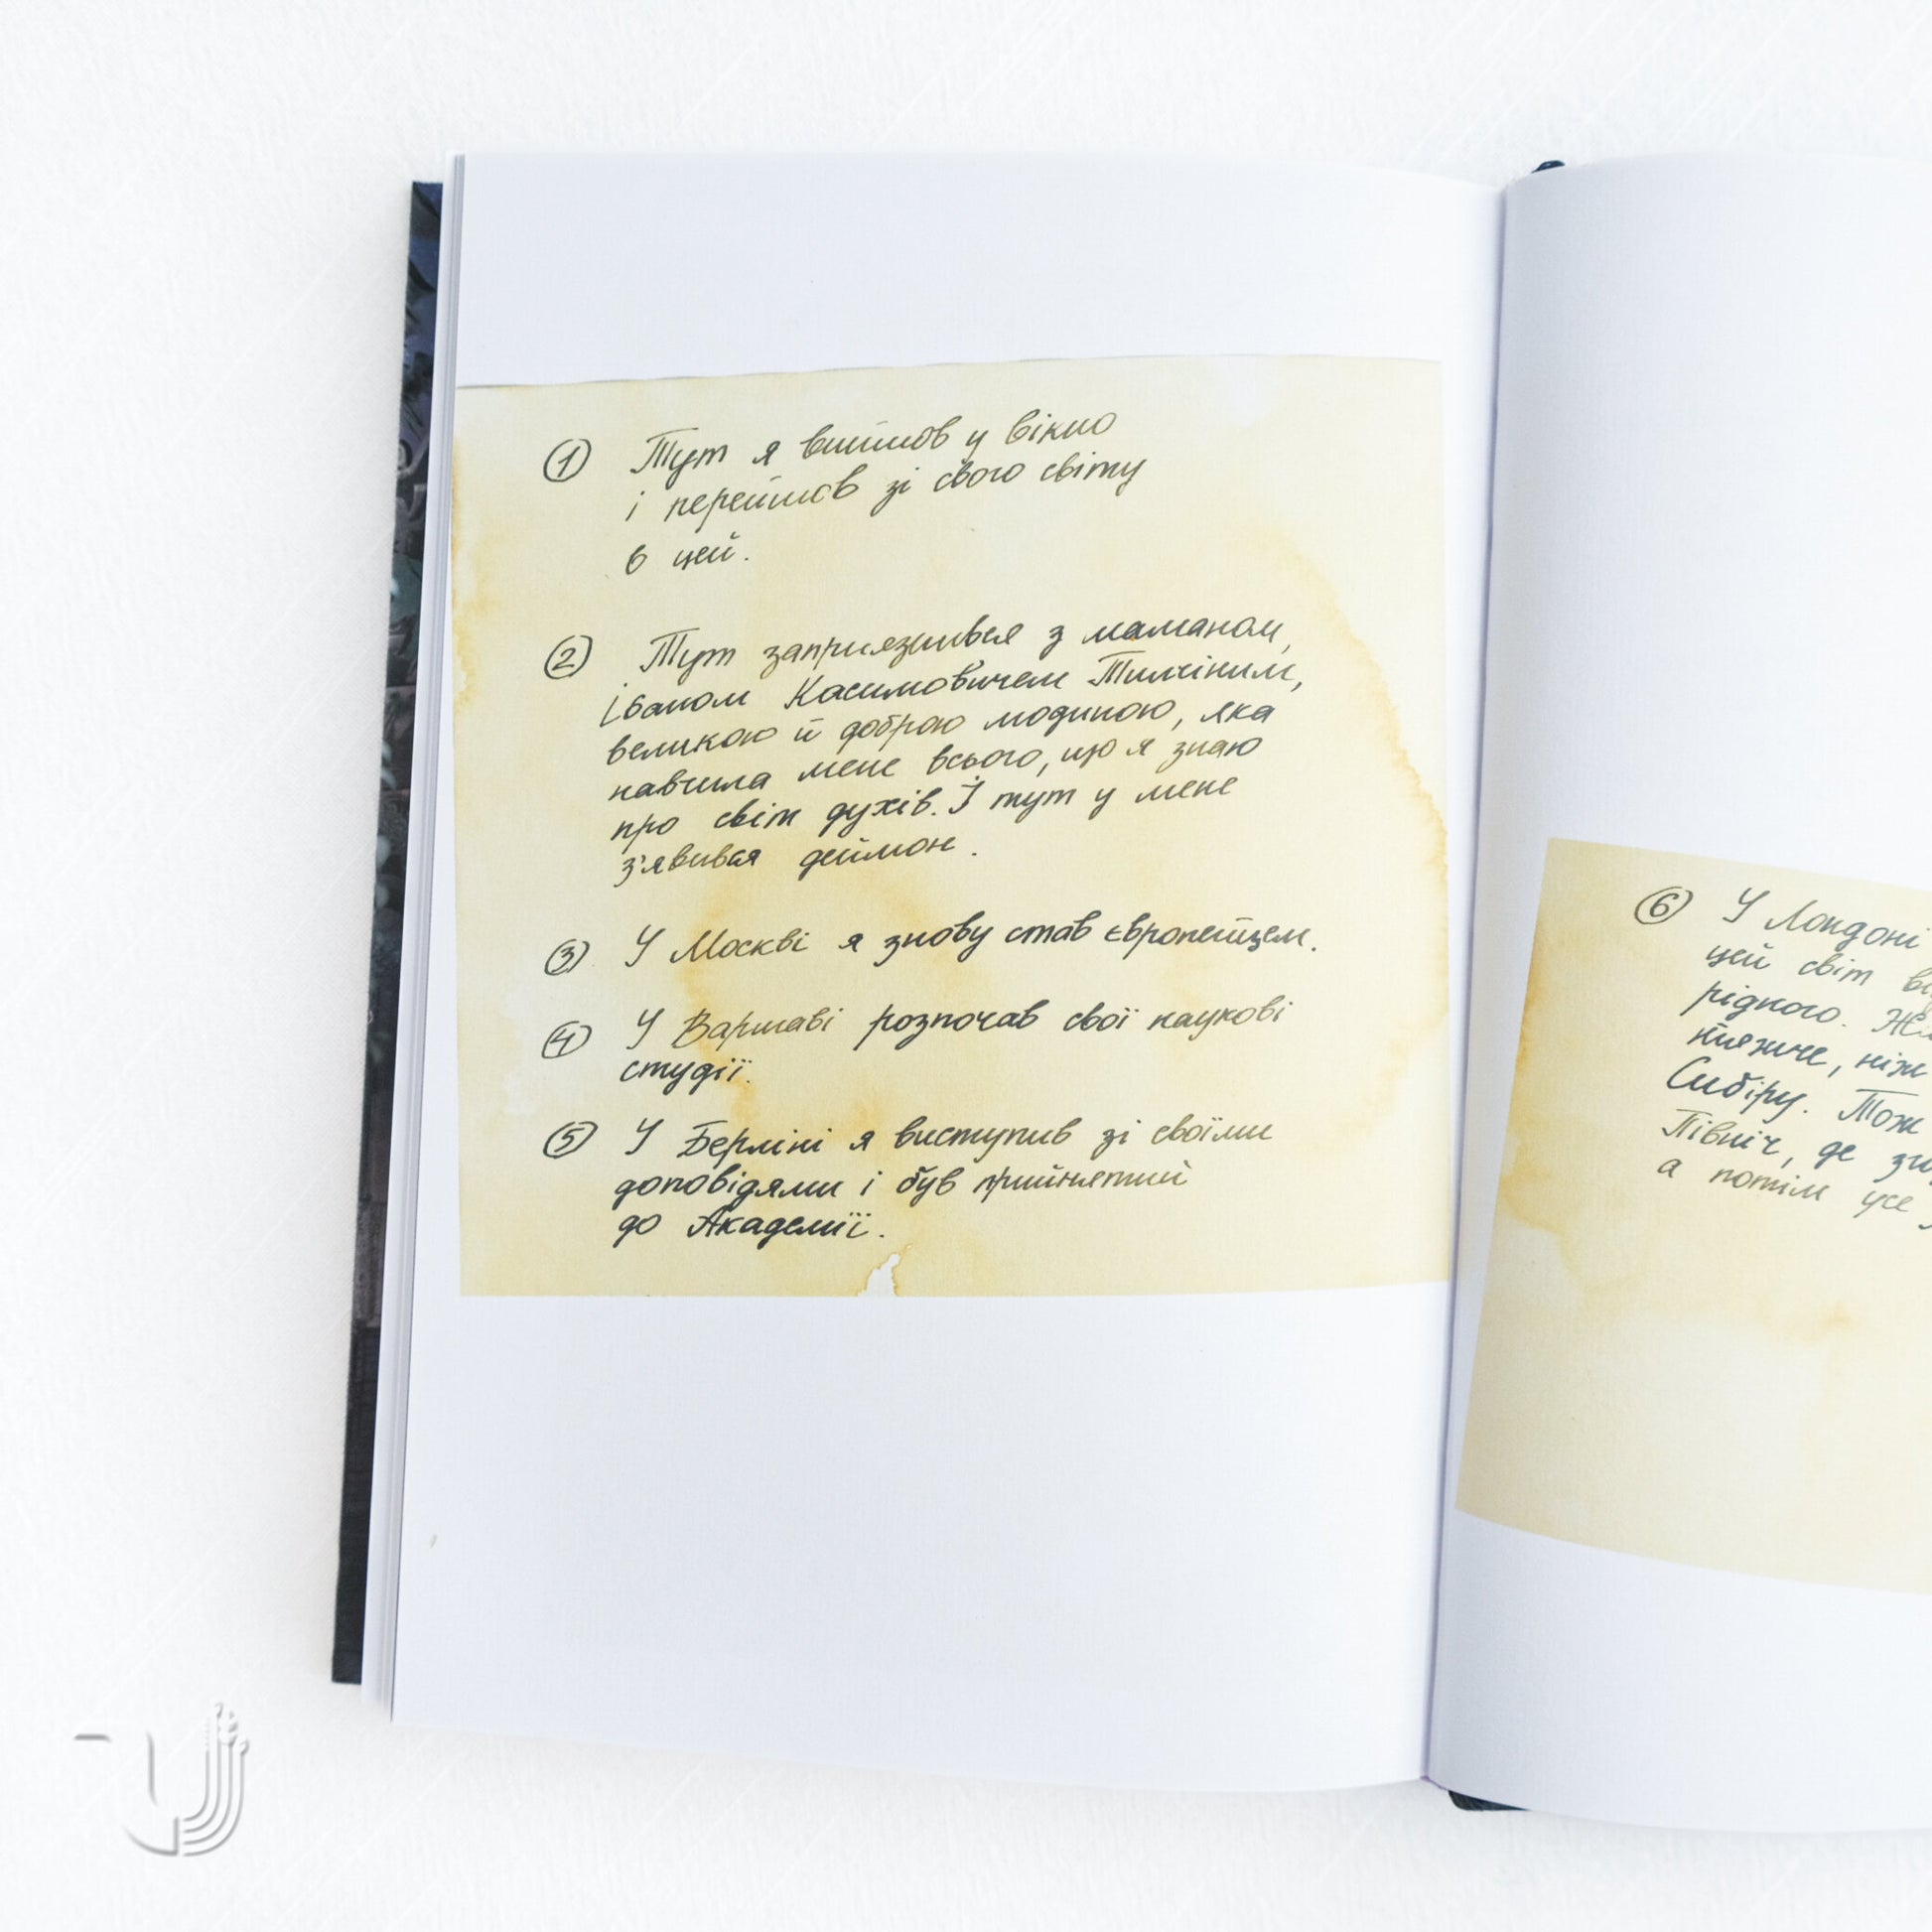 1 Тут я вийшов у вікно
і перейшов зі свого світу
в цей.
2 Тут заприязнився з шаманом,
Іваном Касимовичем Тилчіним,
великою й доброю людиною, яка
навчила мене всього, що я знаю
про світ духів. І тут у мене
з'явився деймон.
3 У Москві я знову став європейцем.
4 У Варшаві розпочав свої наукові
студії.
5 У Берліні я виступив зі своїми
доповідями і був прийнятий
до Академії.
6 У Лондоні
цей світ
рідного.
тяжче, ніж
Сибіру. Тож
Північ, де
а потім усе